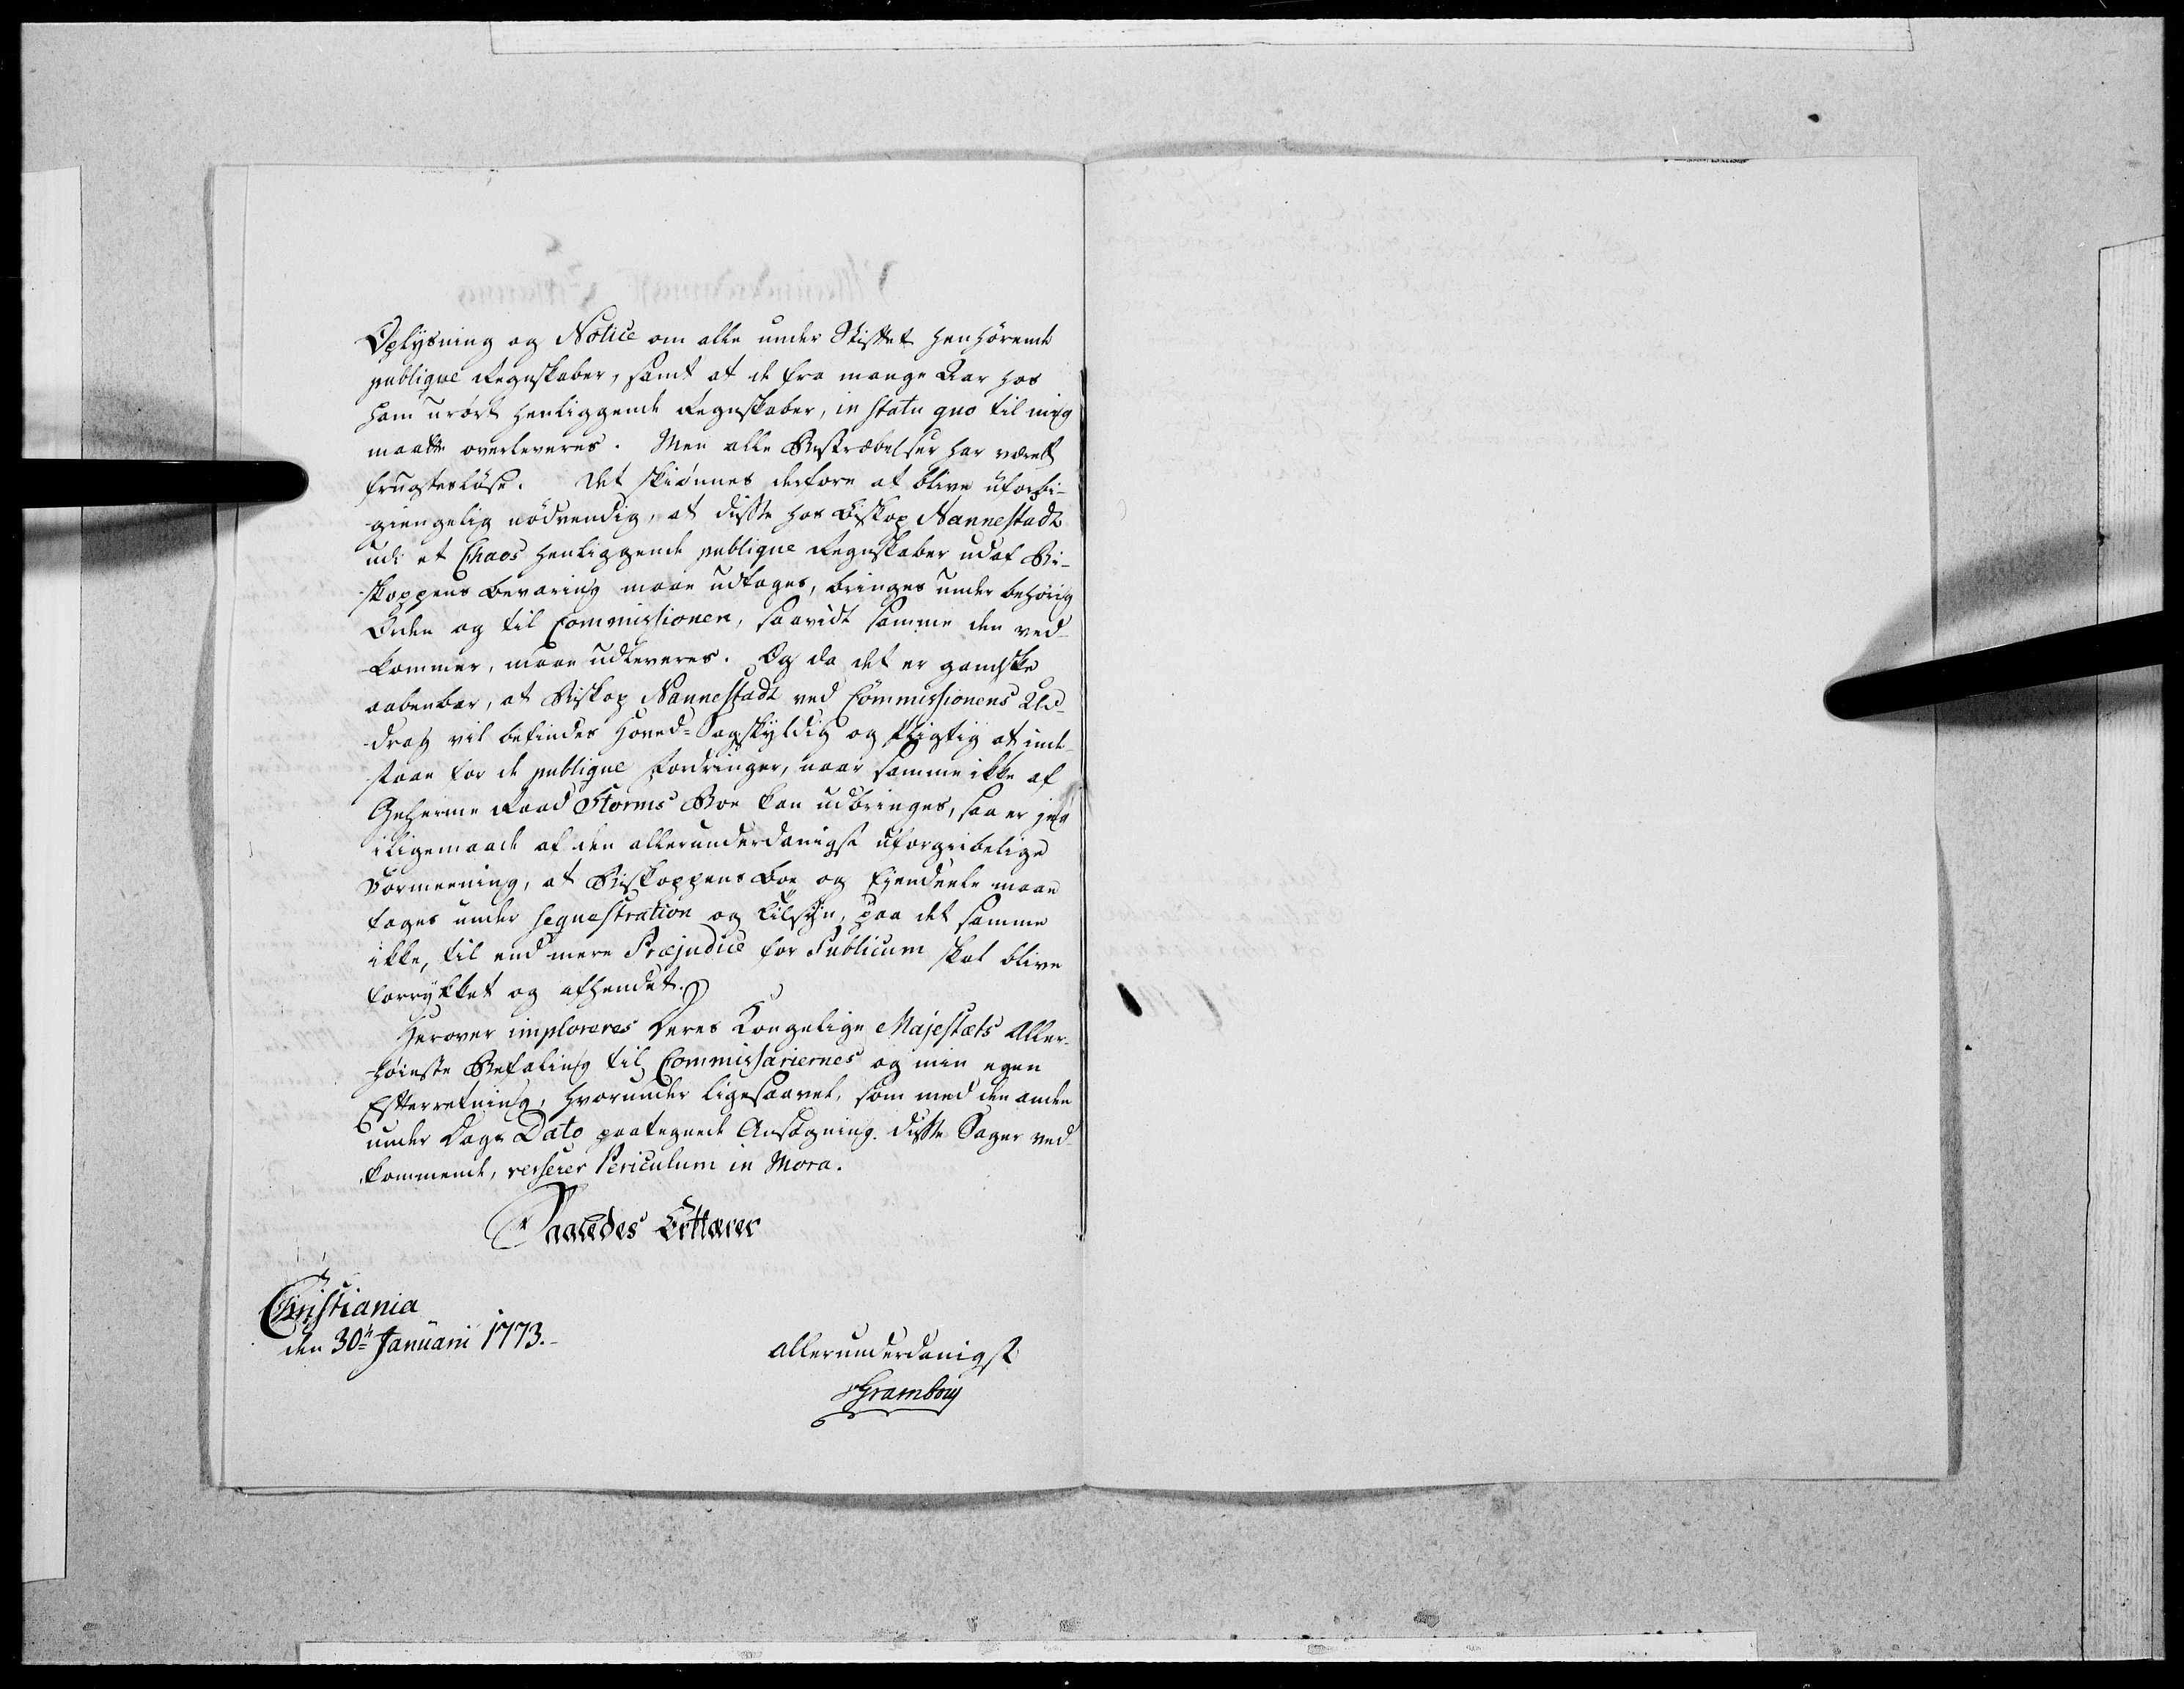 Oplysning og Notice om alle under Skiftet henhørende
publique Regnskaber, samt at de fra mange Aar hos
ham urørt henliggende Regnskaber, in statu quo til mig
maatte overleveres. Men alle Bestræbelser har været
frugtesløse. Det skiønnes derfore at blive uforbi-
giengelig nødvendig, at disse hos Biskop Nannestadt
udi et Chaos henliggende publique Regnskaber udaf Bi-
skoppens Bevaring maae udtages, bringes under behørig
Orden og til Commissionen, saavidt samme den ved-
kommer, maae udleveres. Og da det er gandske
aabenbar, at Biskop Nannestadt ved Commissionens Ud-
drag vil befindes Hoved-Sagskyldig og pligtig at inde-
staae for de publique Fordringer, naar samme ikke af
Geheime Raad Storms Boe kan udbringes, saa er jeg
iligemaade af den allerunderdanigst uforgribelige
Formeening, at Biskoppens Boe og Eiendeele maae
tages under sequestration og Tilsyn, paa det samme
ikke, til end mere Præjudice for Publicum skal blive
forrykket og afhendet.
Herover imploreres Deres Kongelige Majestæts Aller-
høieste Befaling til Commissariernes og min egen
Efterretning, hvorunder ligesaavel, som med den anden
under Dags Dato paategnede Ansøgning disse Sager ved-
kommende, verserer Periculum in Mora.
Saaledes Erklærer
Christiania
den 30te Januarii 1773.
allerunderdanigst
Grambow